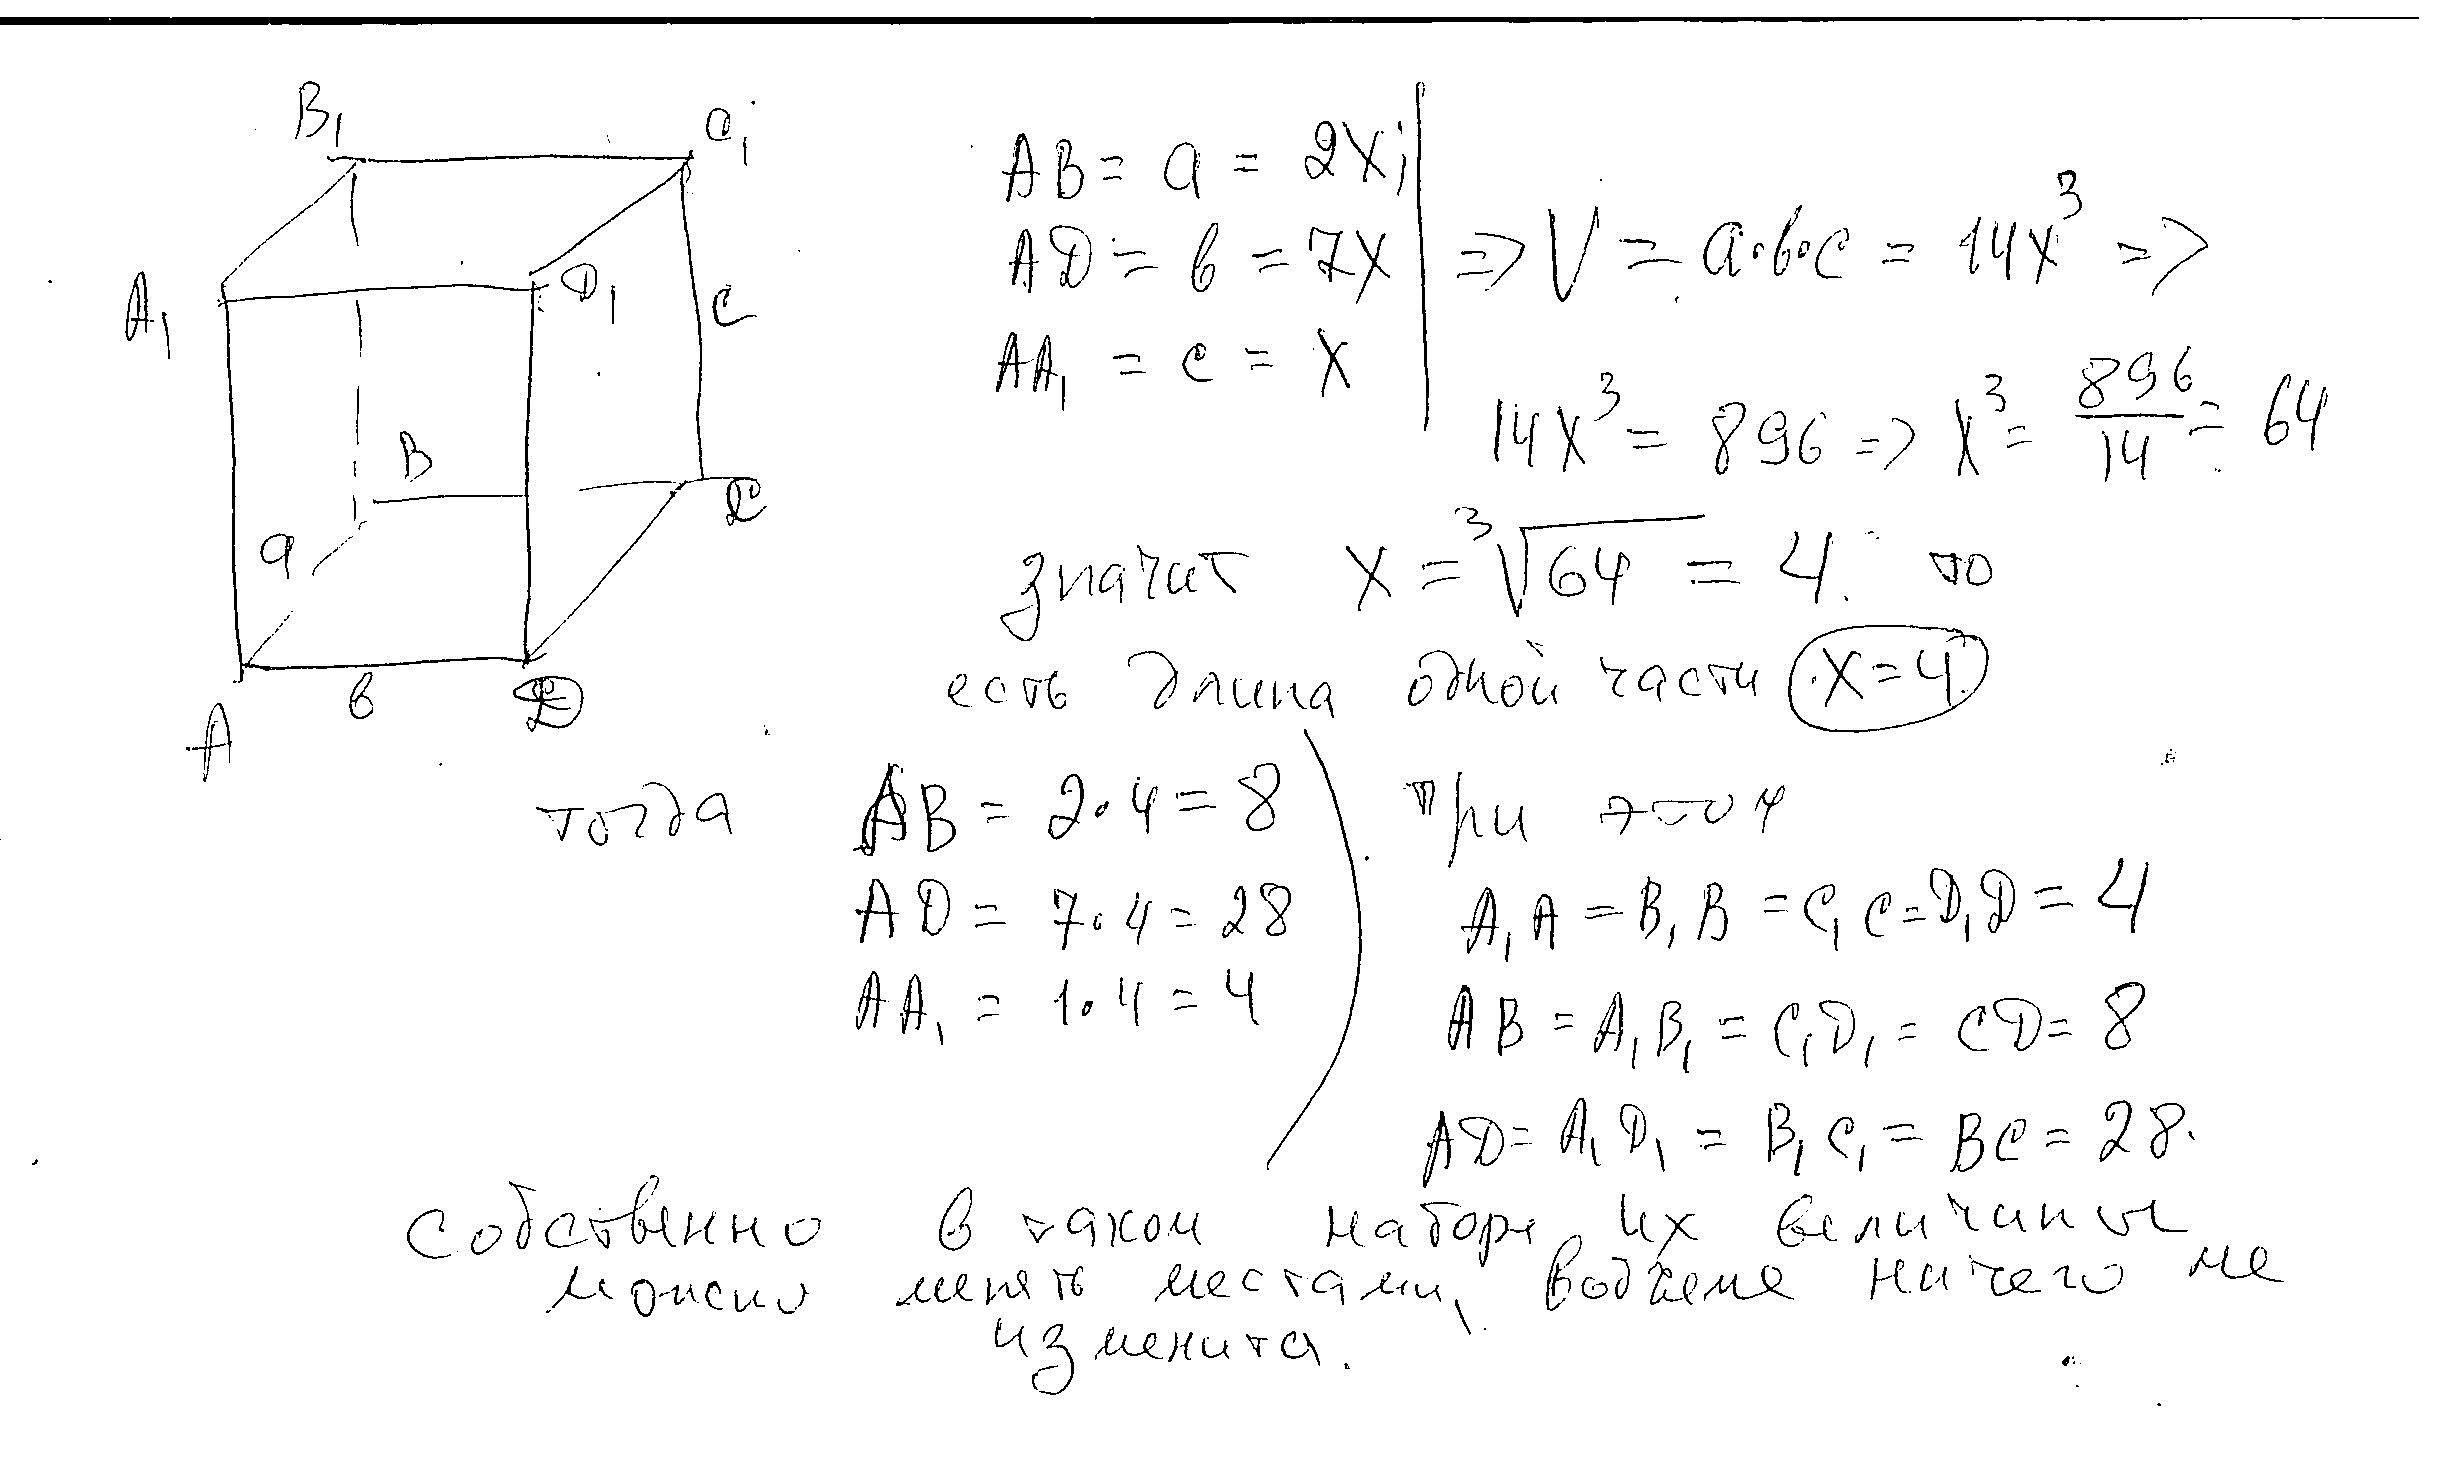 B₁ C₁
A₁ D₁ C
B
a C
A в D
AB = a = 2x;
AD = в = 7x
AA₁ = c = x
=> V = a·в·c = 14x³ =>
14x³ = 896 => x³ = 896/14 = 64
значит x = ³√64 = 4. то
есть длина одной части x = 4
тогда AB = 2·4 = 8
AD = 7·4 = 28
AA₁ = 1·4 = 4
при этом
A₁A = B₁B = C₁C = D₁D = 4
AB = A₁B₁ = C₁D₁ = CD = 8
AD = A₁D₁ = B₁C₁ = BC = 28.
Собственно в таком наборе их величины
можно менять местами, ничего не
изменится.